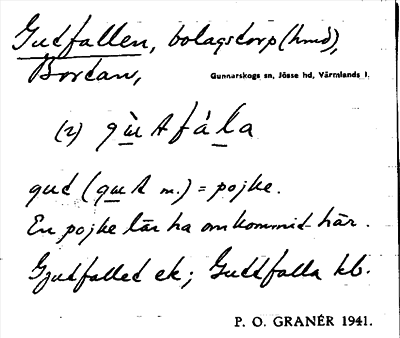 Gudfallen, bolagstorp (hmd),
Bortan,
Gunnarskogs sn, Jösse hd, Värmlands l.
(2) gùtfála
gud (gut m.) = pojke.
En pojke lär ha omkommid här.
Gjudfalled ek; Guddfalla kb.
P. O. GRANÉR 1941.